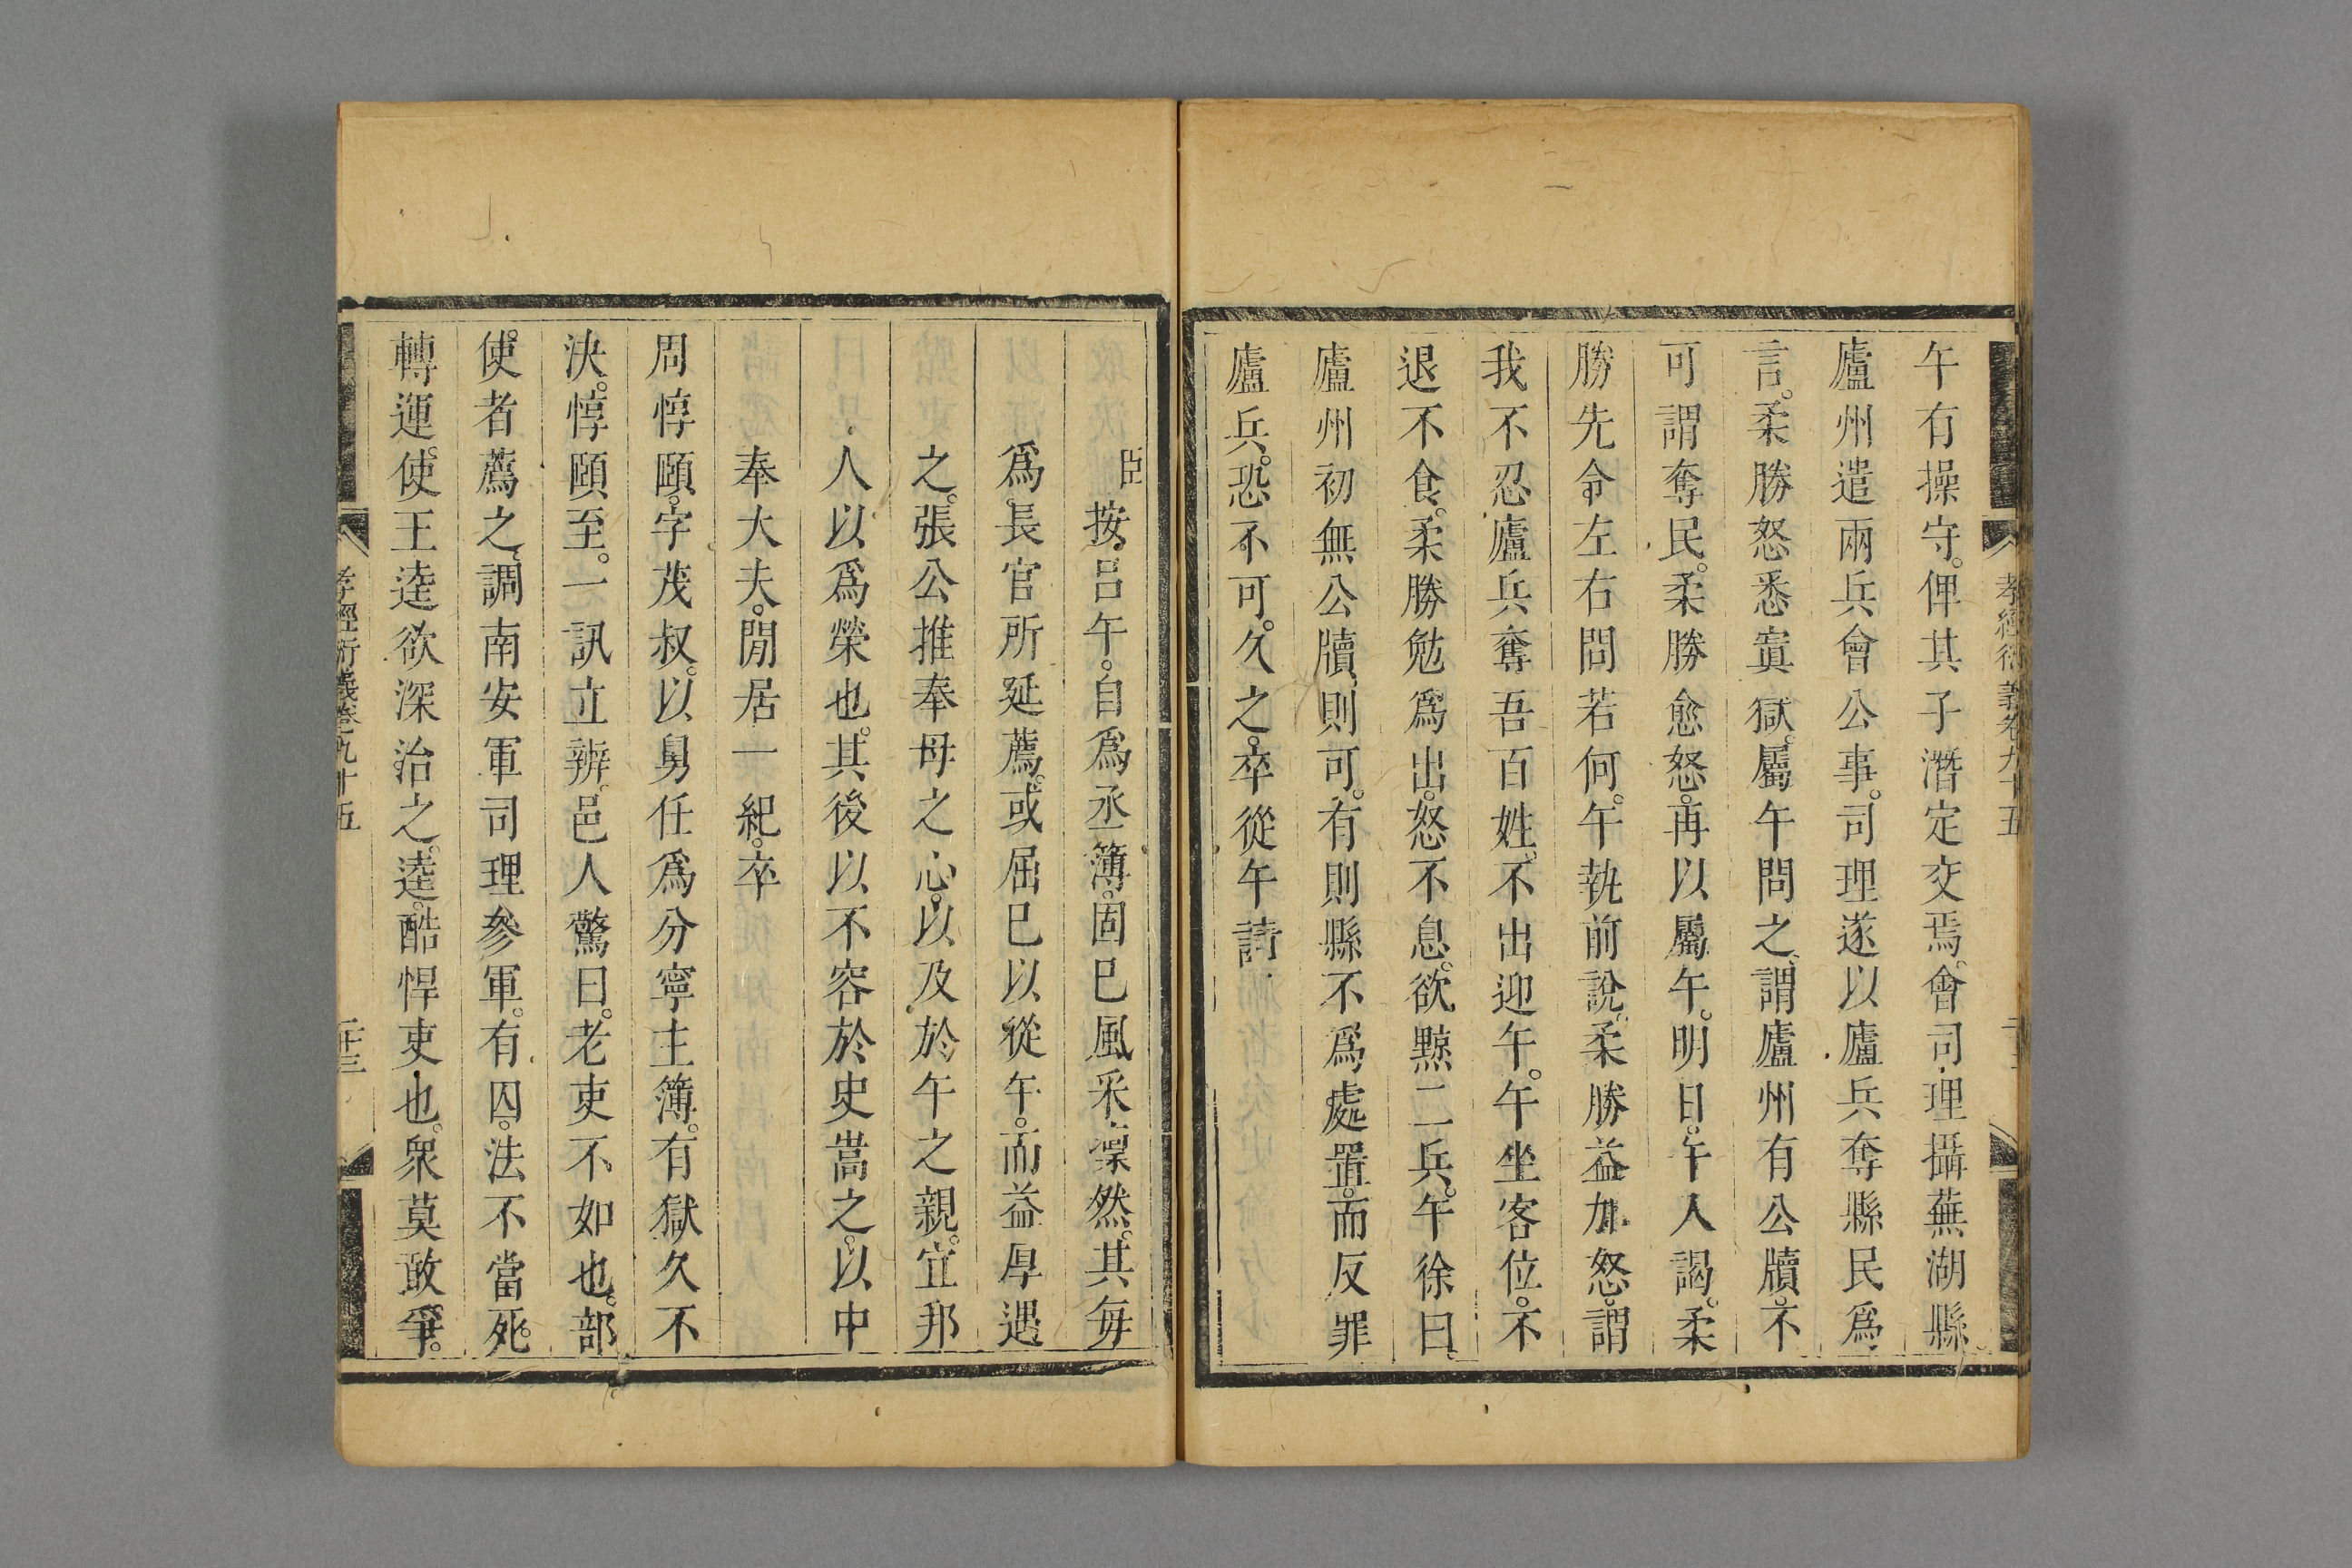 午有操守。俾其子潛定交焉。會司理攝蕪湖縣。
廬州遣兩兵會公事。司理遂以廬兵奪縣民爲
言。柔勝怒悉寘獄。屬午問之。謂廬州有公牘。不
可謂奪民。柔勝愈怒。再以屬午。明日。午入謁。柔
勝先令左右問若何。午執前說。柔勝益加怒。謂
我不忍廬兵奪吾百姓。不出迎午。午坐客位。不
退不食。柔勝勉爲出。怒不息。欲黥二兵。午徐曰。
廬州初無公牘。則可。有則縣不爲處置。而反罪
廬兵。恐不可。久之。卒從午請
孝經衍義卷九十五
臣按。呂午。自爲丞簿。固已風采凜然。其每
爲。長官所延薦。或屈已以從午。而益厚遇
之。張公推奉母之心。以及於午之親。宜邦
人以爲榮也。其後以不容於史嵩之。以中
奉大夫。閒居一紀。卒
周惇頤。字茂叔。以舅任爲分寧主簿。有獄久不
決。惇頤至。一訊立辨。邑人驚曰。老吏不如也。部
使者薦之。調南安軍司理參軍。有囚。法不當死。
轉運使王逵欲深治之。逵。酷悍吏也。眾莫敢爭。
孝經衍義卷九十五
二十三